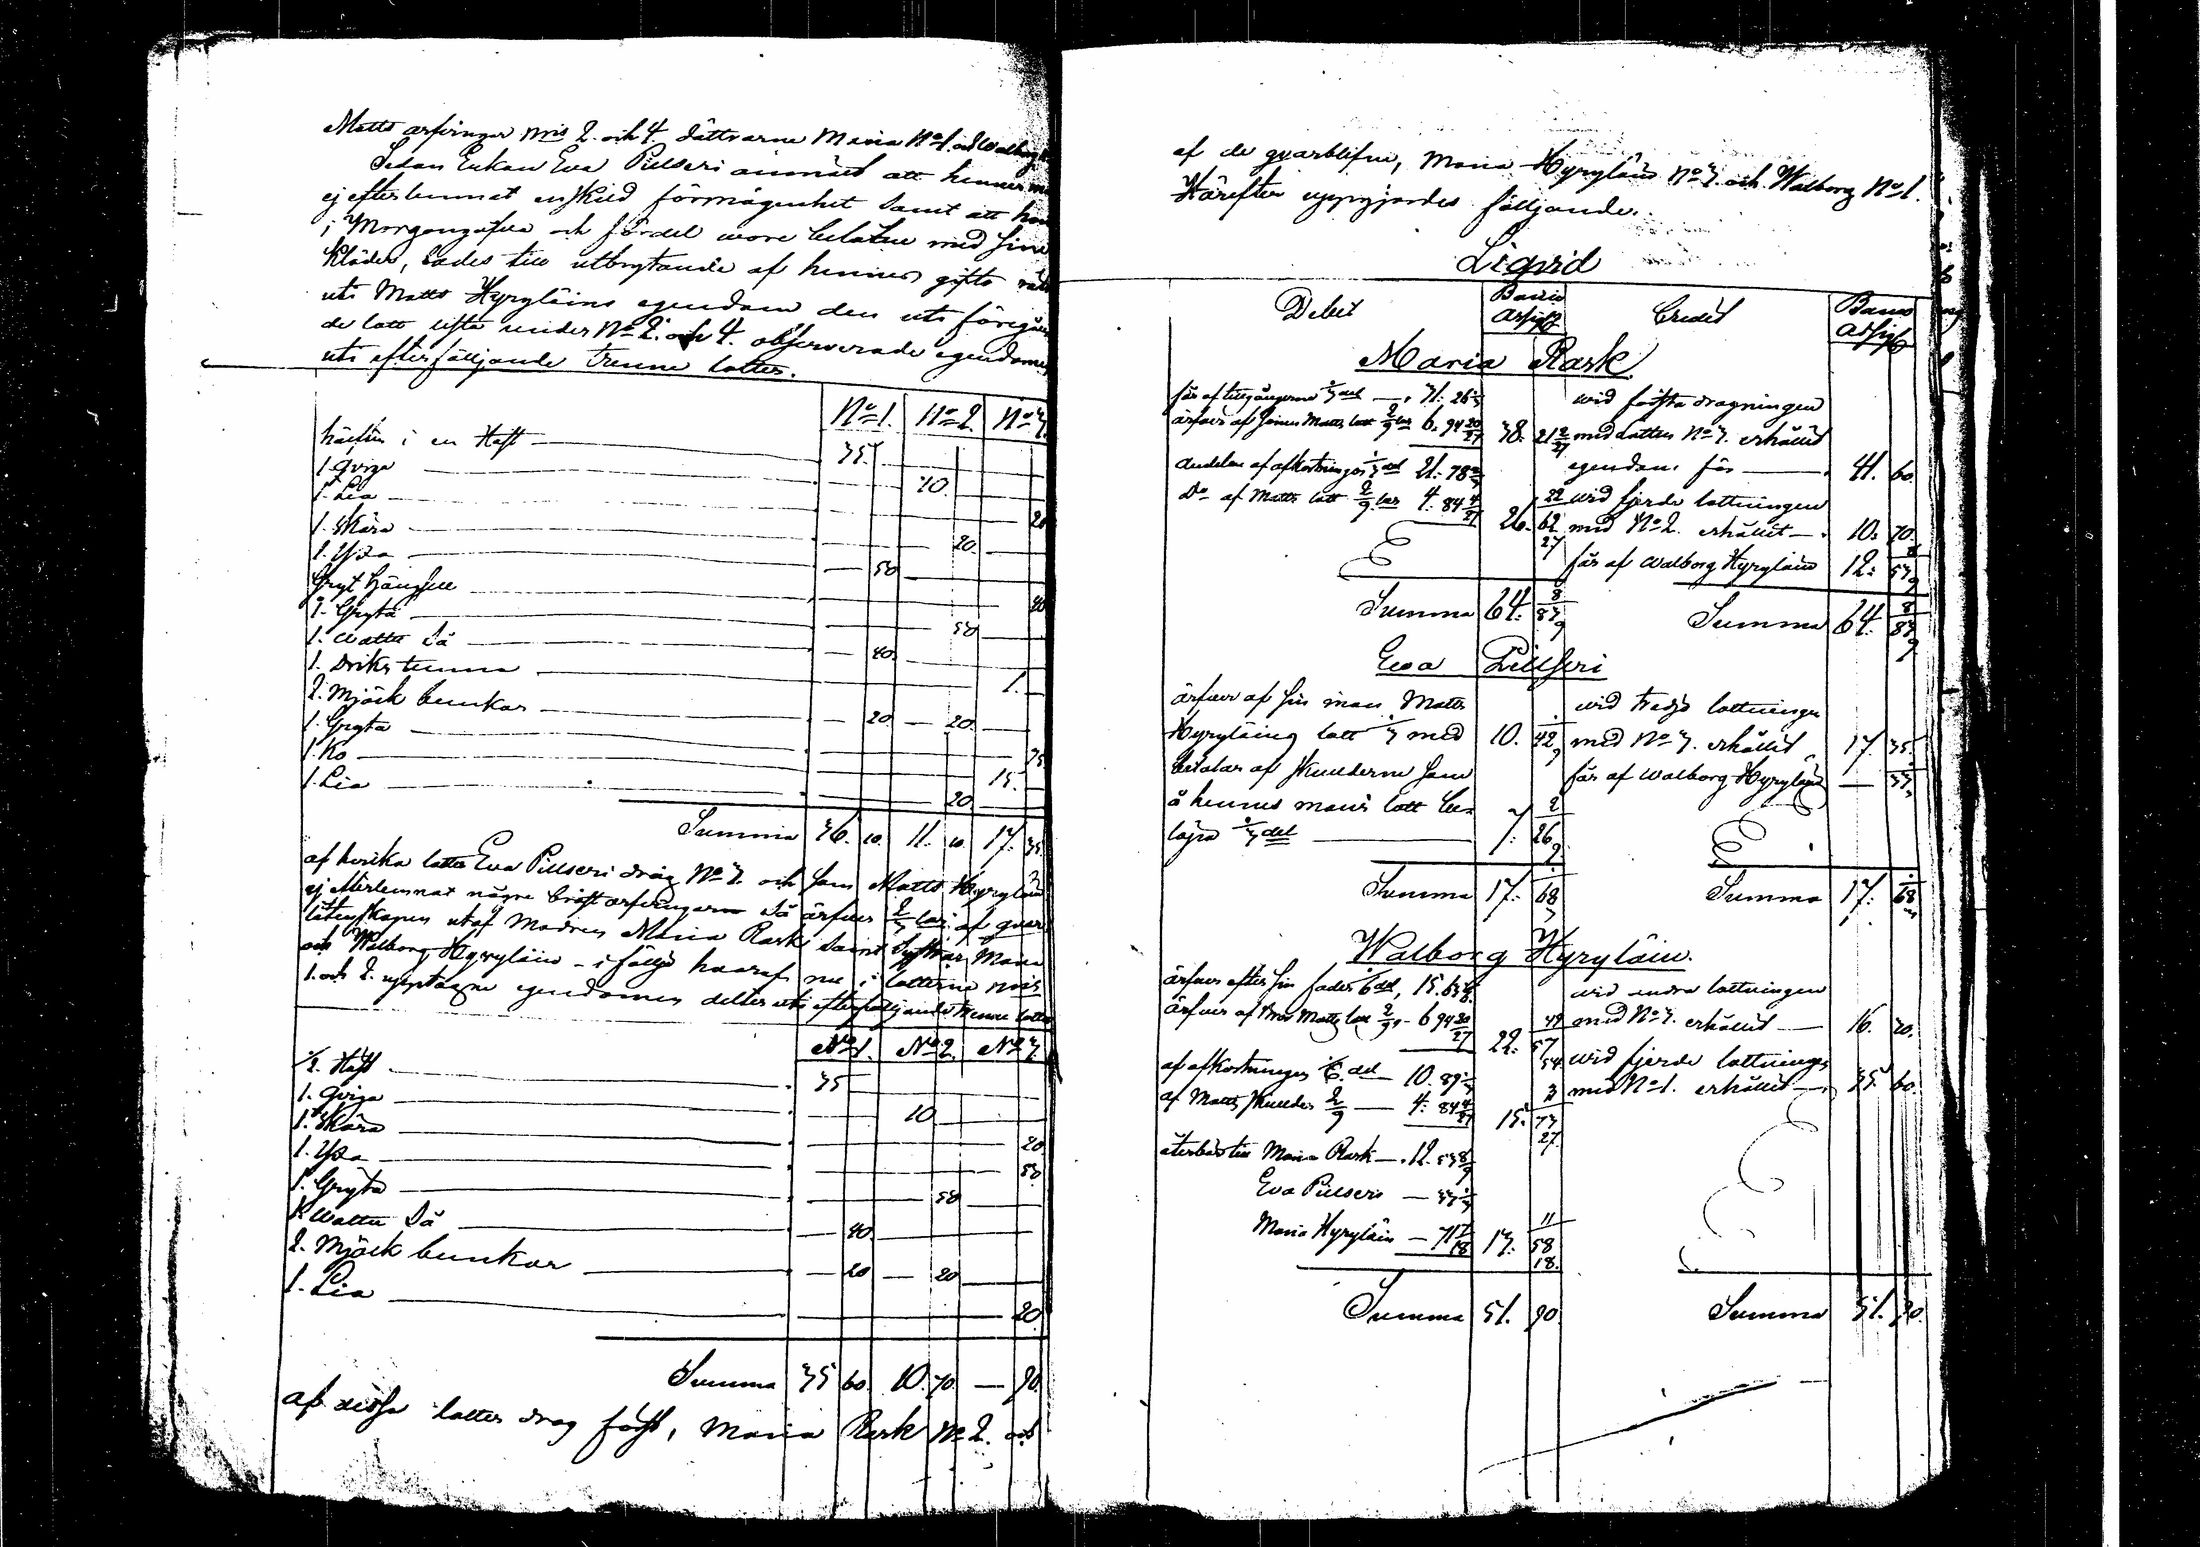 Matts arfvingar Nris 2. och 4. döttrarne Maria No 1. och Walborg
Sedan Enkan Eva Pillseri anmält att hennes
ej efterlemnat enskild förmögenhet samt att hon
i Morgongåfva och fördel wore belåten med sine
Kläder, lades till utbrytande af hennes gifto rätt
uti Matts Hyryläins egendom den uti föregåen
de lott lista under No 2. och 4. observerade egendomen
uti efterföljande trenne lotter.
No 1. No 2. No 3.
hälften i en Häst 35.
1. Qviga 10.
1. Lia 20
1. Skära 20.
1. Yxa 50
Gryt hängsle 40
1. Gryta 50
1. Watten Så 40.
1. Driks tunna 1.
2. Mjölk bunkar 20 20.
1. Gryta 75
1. Ko 15.
1. Lia 20
Summa 36. 10. 11. 10. 17. 35
af hvilka lotter Eva Pillseri drag No 3. och som Matts Hyryläin
ej efterlemnat någre bröst arfvingar så ärfver af qvar
låtenskapen utaf Modren Maria Rask samt Systrar Maria
och Walborg Hyryläin - i följd hvaraf nu i lotterne Nris
1. och 2. upptagne egendomen deltes uti efterföljande trenne lotter
No 1. No 2. No 3.
1/2 Häst 35
1. Qviga 10
1. Skära 20
1. Yxa 50
1. Gryta 50
1. Watten Så 40.
2. Mjölk bunkar 20 20
1. Lia 20
Summa 35 60. 10. 70. — 90.
af dessa lotter drag först, Maria Rask No 2. och
af de qvarblifne, Maria Hyryläin No 3. och Walborg No 1.
Härefter uppgjordes följande.
Liqvid
Debet Banco Assign Credit Banco Assign
Maria Rask
får af tillgångarne 1/3 del 31. 26 wid första dragningen
ärfver af sonen Matts lott 2/9 lar 6. 94 20/27 38. 21 2/27 med lotten No 3. erhållit
egendom för 41. 60.
andelen af afkortningen 1/3 del 21. 78
Do af Matts lott 2/9 lar 4. 84 4/27 26. 62 22/27 wid fjerde lottningen
med No 2. erhållit 10. 70.
får af Walborg Hyryläin 12. 53 8/9
Summa 64. 83 8/9 Summa 64. 83 8/9
Eva Pillseri
ärfver af sin man Matts wid tredje lottningen
Hyryläins lott 1/3 med 10. 42 med No 3. erhållit 17. 35.
betalar af skulderne som får af Walborg Hyryläin — 33
å hennes mans lott be-
löpa 1/3 del 7. 26 2/9
Summa 17. 68 Summa 17. 68
Walborg Hyryläin.
ärfver efter sin fader 1/6 del, 15. 63 wid andra lottningen
ärfver af Bror Matts lott 2/9 6 94 20/27 22. 57 med No 3. erhållit 16. 30.
af afkortningen 1/6 del 10. 89 wid fjerde lottningen
af Matts skulder 2/9 4. 84 4/27 15. 73 med No 1. erhållit 35 60.
återbär till Maria Rask 12. 53 8/9
Eva Pillseri — 33
Maria Hyryläin — 71 1/18 13. 58 11/18
Summa 51. 90. Summa 51. 90.